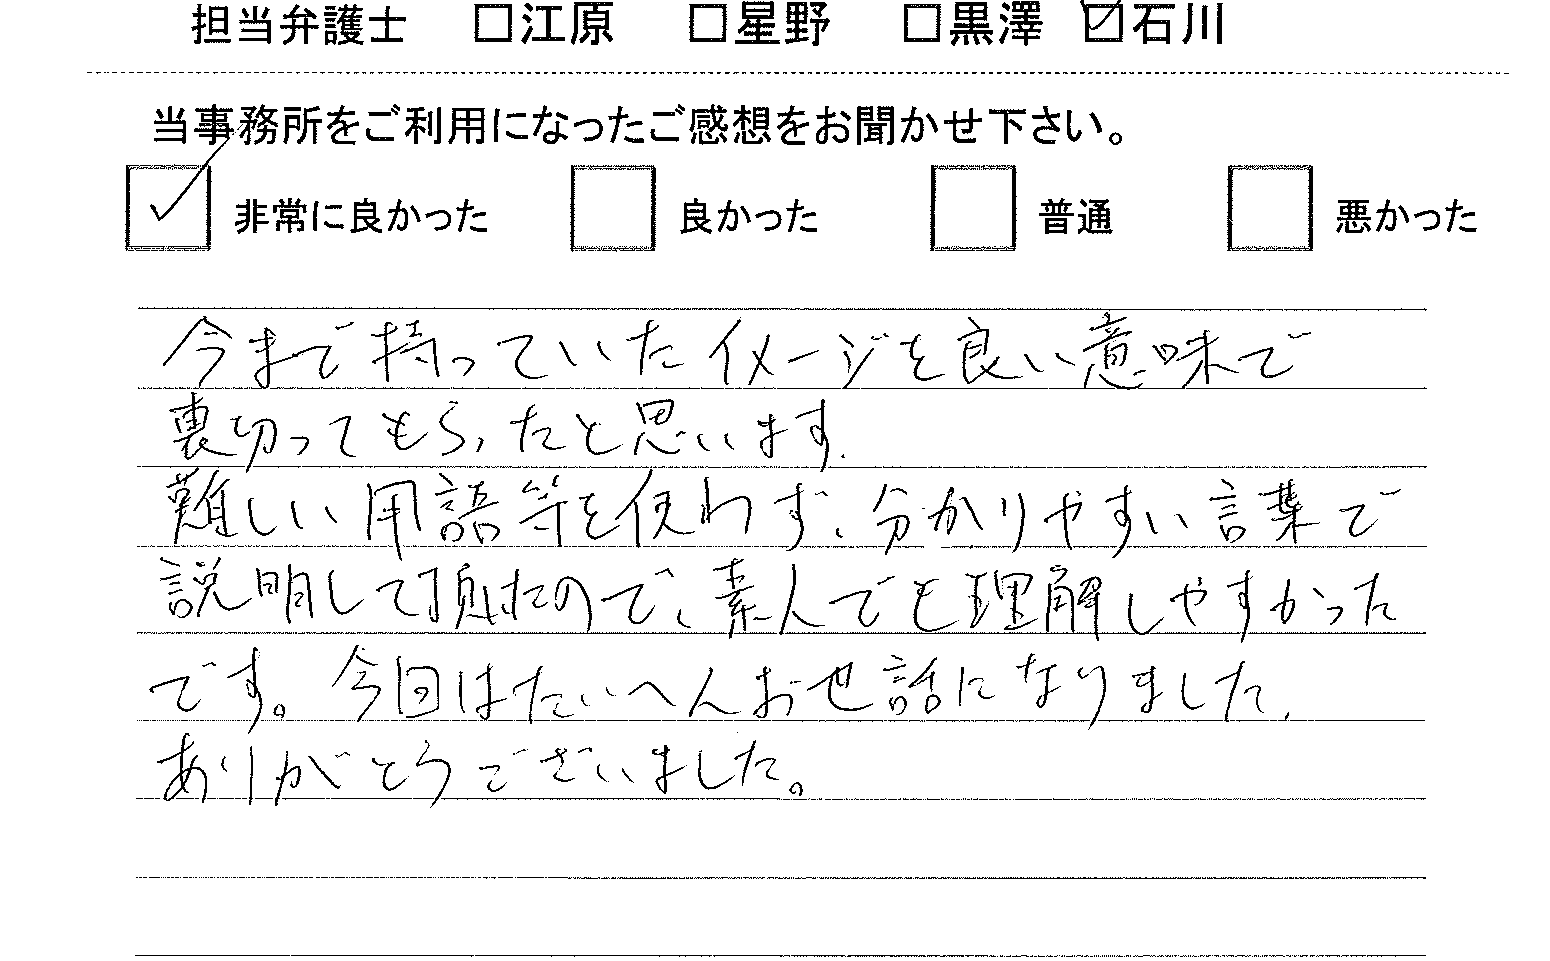 担当弁護士 □江原 □星野 □黒澤 ☑石川
当事務所をご利用になったご感想をお聞かせ下さい。
☑ 非常に良かった □ 良かった □ 普通 □ 悪かった
今まで持っていたイメージを良い意味で
裏切ってもらったと思います.
難しい用語等を使わず、分かりやすい言葉で
説明して頂けたので、素人でも理解しやすかった
です。今回はたいへんお世話になりました.
ありがとうございました。